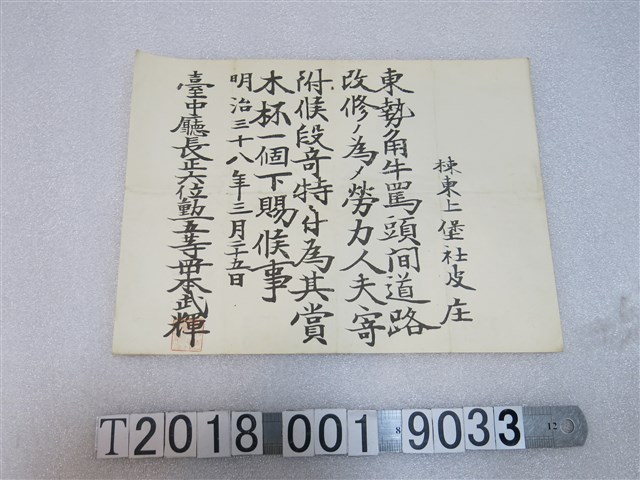 揀東上堡社皮庄
東勢角牛罵頭間道路
改修ノ為メ勞力人夫寄
附候段奇特ニ付為其賞
木杯一個下賜候事
明治三十八年三月二十五日
臺中廳長正六位勳五等岡本武輝
T2018 001 9033
8
12